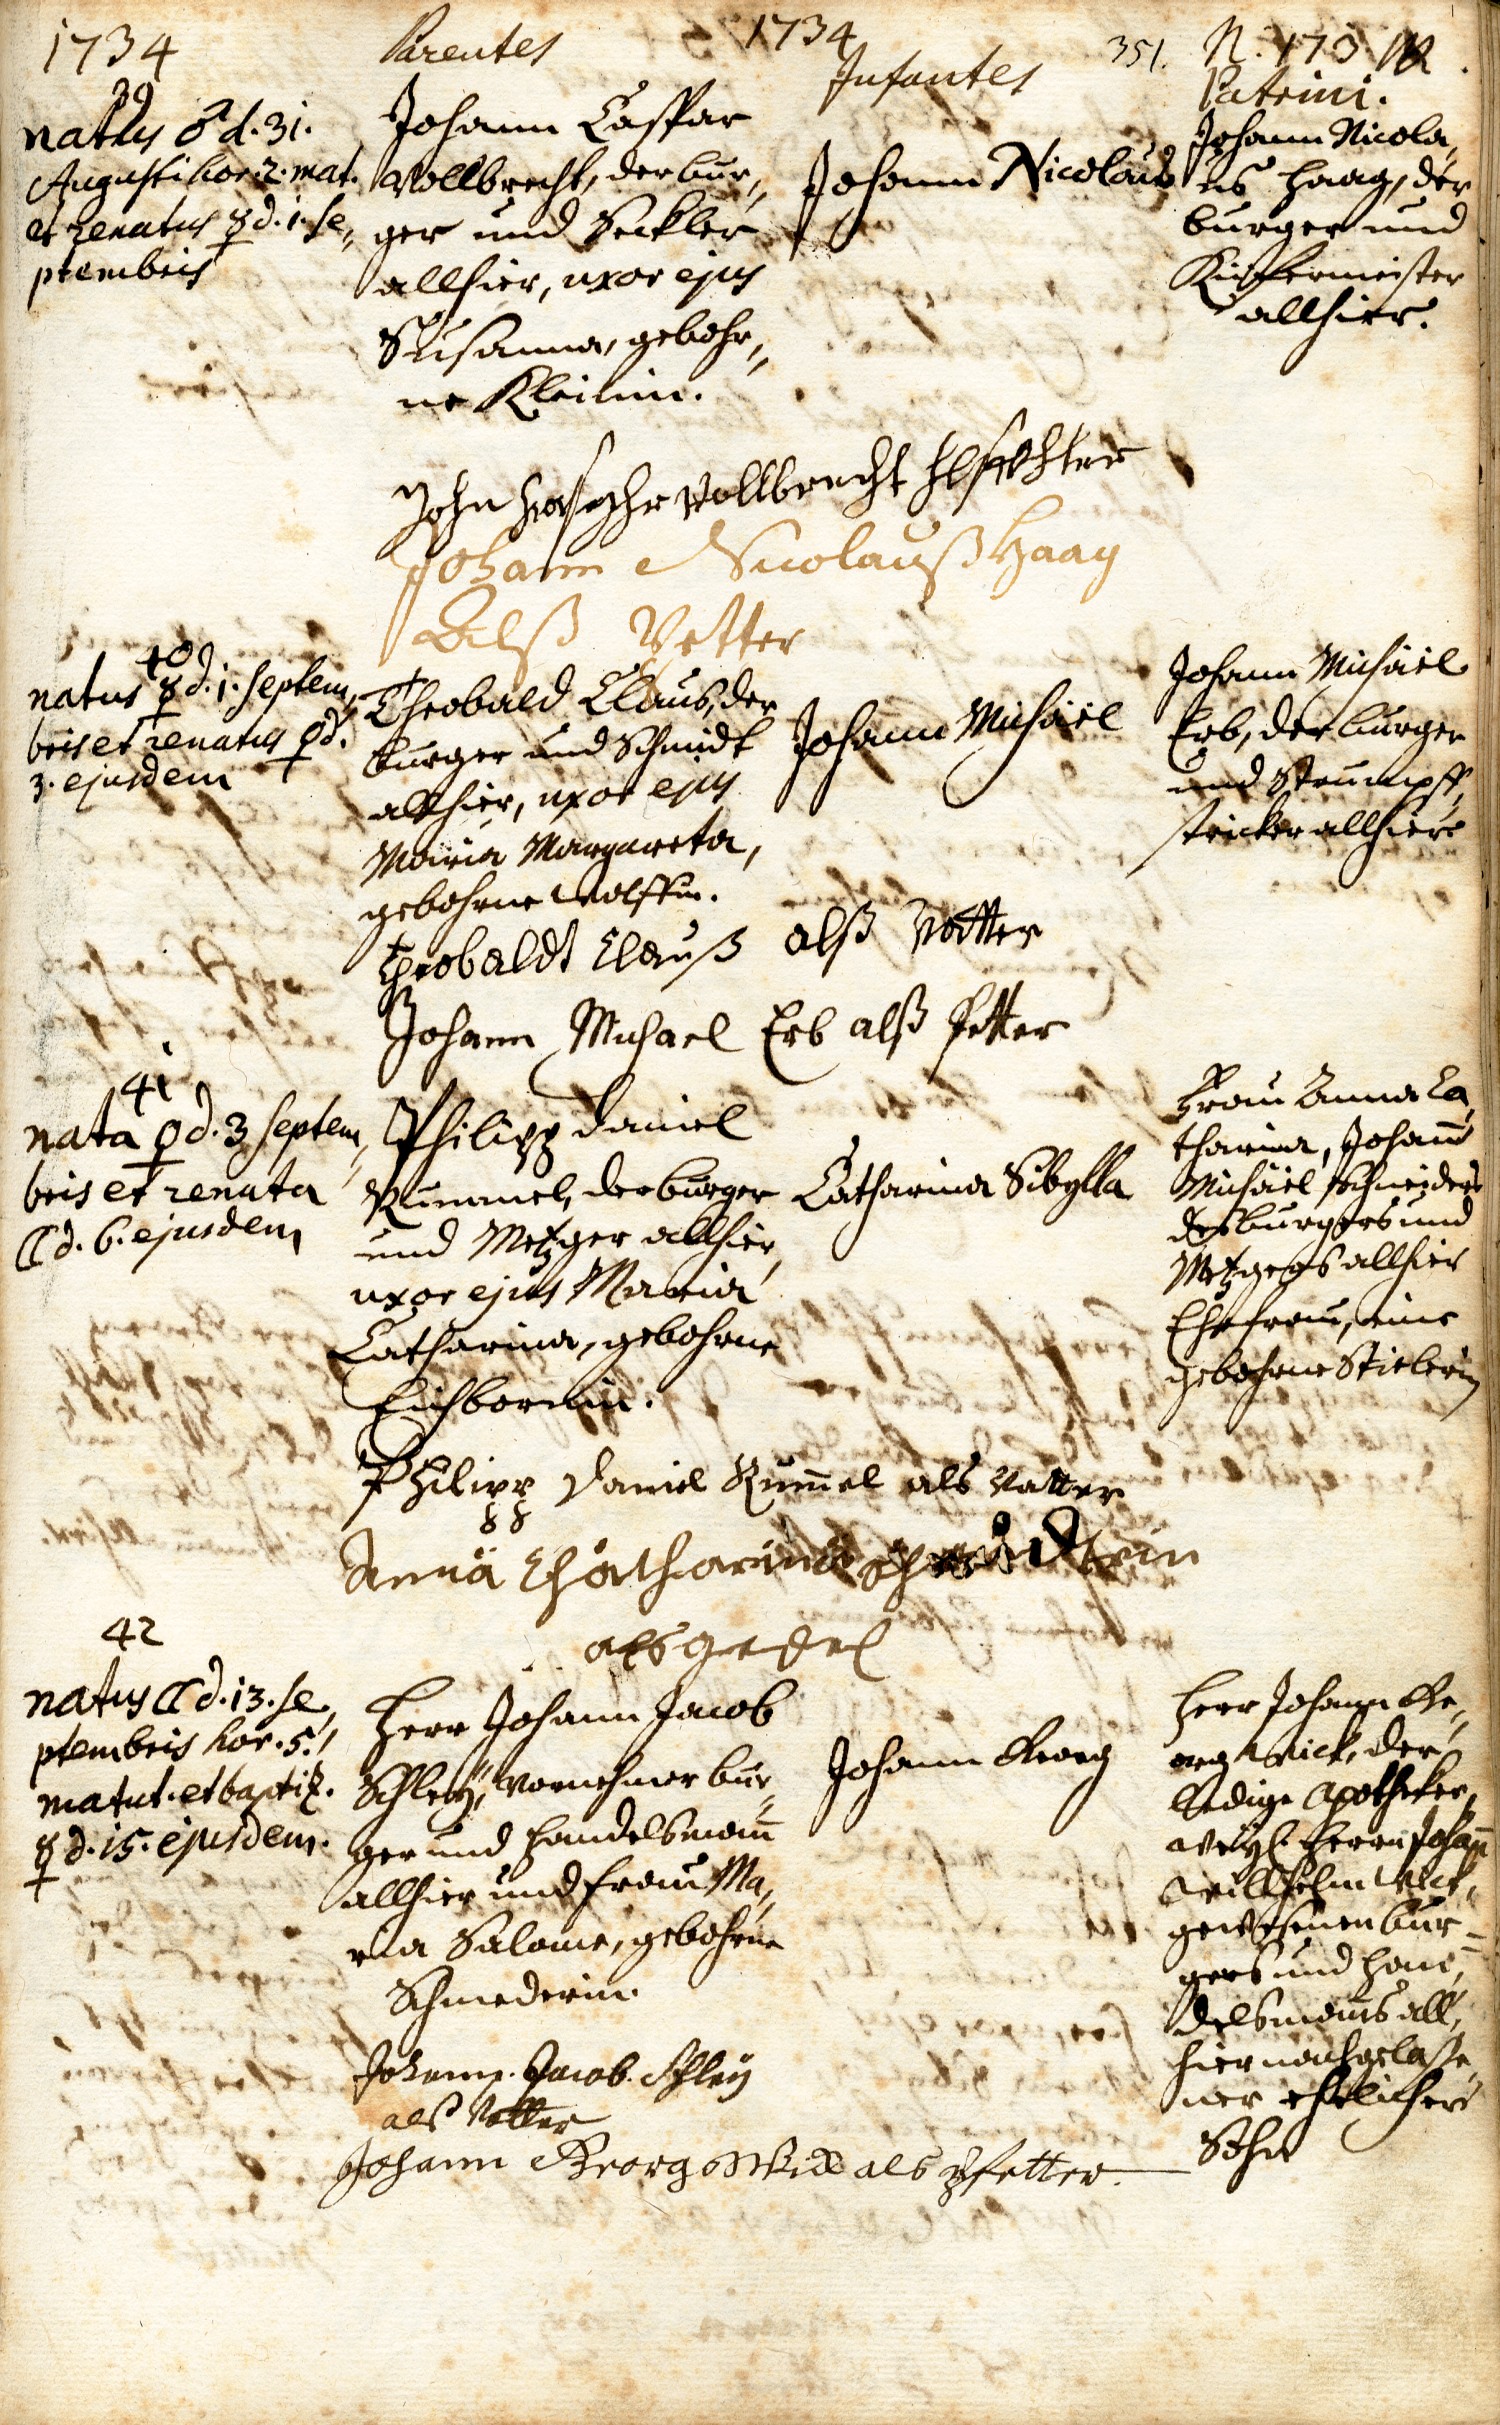 1734
Parentes
1734
Infantes
351.
N. 173
Patrini.
39
natus ♂ d. 31.
Augusti hor. 2. mat.
et renatus ☿ d. 1. Se„
ptembris
Johann Caspar
Vollbrecht, der bur„
ger und Seckler
allhier, uxor ejus
Susanna, gebohr„
ne Kleinin.
Johann Nicolaus
Johann Nicola„
us Haag, der
burger und
Küffermeister
allhier.
Vollbrecht
Johann Nicolauß Haag
Alß Petter
40
natus ☿ d. 1. Septem„
bris et renatus ♀ d.
3. ejusdem
Theobald Claus, der
burger und Schmidt
allhier, uxor ejus
Maria Margareta,
gebohrne Wolffin.
Johann Michael
Johann Michael
Erb, der burger
und Strumpff„
stricker allhier
Theobaldt Clauß alß Vatter
Johann Michael Erb alß Petter
41
nata ♀ d. 3 Septem„
bris et renata
☾ d. 6. ejusdem
Philipp Daniel
Rummel, der burger
und Metzger allhier,
uxor ejus Maria
Catharina, gebohrne
Eichbornin.
Catharina Sibylla
Frau Anna Ca„
tharina, Johann
Michael Schneiders
des burgers und
Metzgers allhier
Ehefrau, eine
gebohrne Stieberin
Philipp Daniel Rum̄el als Vatter
Anna Chatharina
als
42
natus ☾ d. 13. Se„
ptembris hor. 5.
matut. et baptiz.
☿ d. 15. ejusdem.
Herr Johann Jacob
Schley, Vornehmer bur„
ger und Handelsman̄
allhier und Frau Ma„
ria Salome, gebohrne
Schmederin.
Johann Georg
Herr Johann Ge„
org Wick, der
ledige Apotheker,
weyl. Herrn Johan̄
Willhelm Wick,
gewesenen bur„
gers und Han„
delsman̄s all„
hier nachgelasse„
ner ehelicher
Sohn
Johann Jacob Schley
als Vatter
Johann Georg Wick als Pfetter.